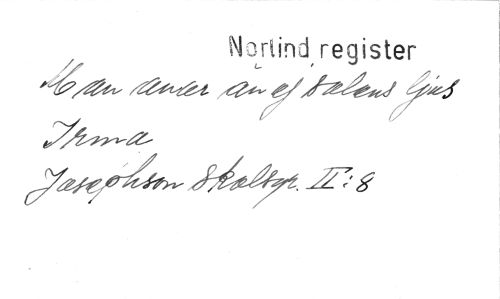 Norlind register
Man anar än ej solens ljus
Irma
Josephson Skolsgr. II:8